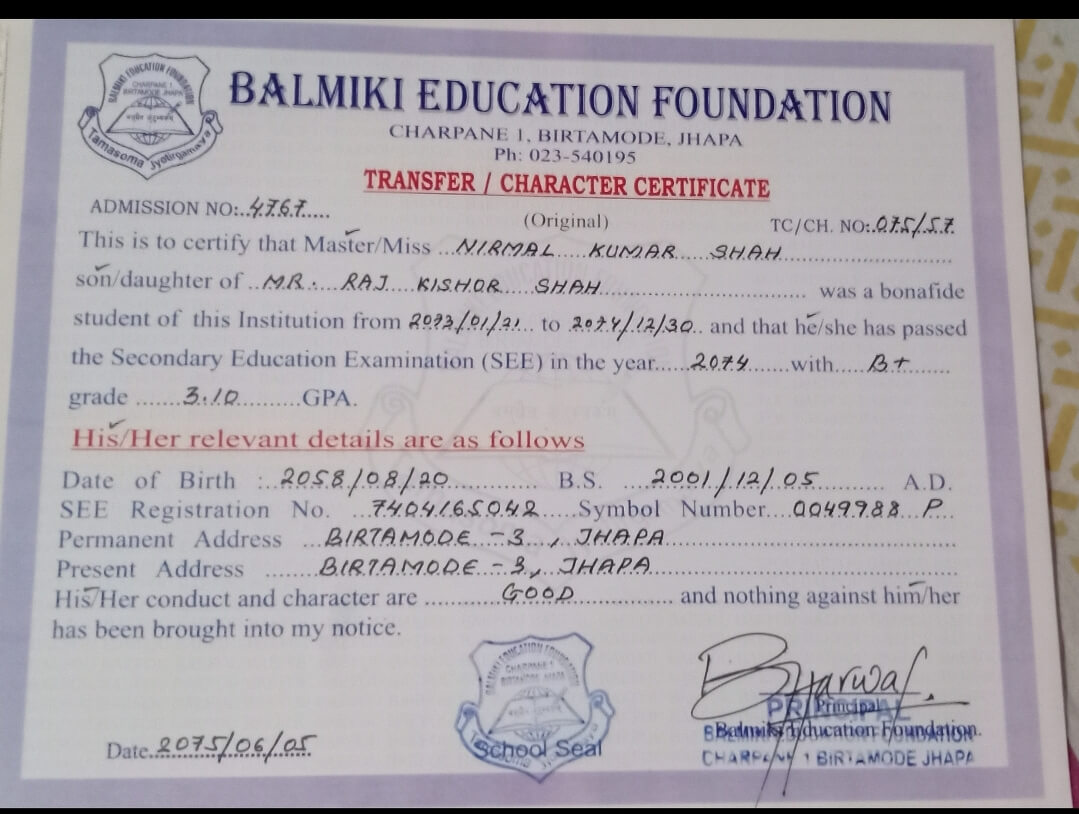 BALMIKI EDUCATION FOUNDATION
CHARPANE 1
BIRTAMODE JHAPA
Tamasoma Jyotirgamaya
BALMIKI EDUCATION FOUNDATION
CHARPANE 1, BIRTAMODE, JHAPA
Ph: 023-540195
TRANSFER / CHARACTER CERTIFICATE
ADMISSION NO:..4767.....
(Original)
TC/CH. NO:.075/57.
This is to certify that Master/Miss ...NIRMAL.....KUMAR.....SHAH..........
son/daughter of ...MR. RAJ KISHOR SHAH.......... was a bonafide
student of this Institution from 2073/01/21.. to 2074/12/30.. and that he/she has passed
the Secondary Education Examination (SEE) in the year......2074......with.....B+........
grade ......3.10..........GPA.
His/Her relevant details are as follows
Date of Birth :..2058/08/20............... B.S. ....2001/12/05.......... A.D.
SEE Registration No. ...7404165042.....Symbol Number....0049988 P..
Permanent Address ...BIRTAMODE - 3 , JHAPA..........
Present Address .......BIRTAMODE - 3, JHAPA..........
His/Her conduct and character are ..........GOOD............. and nothing against him/her
has been brought into my notice.
BALMIKI EDUCATION FOUNDATION
CHARPANE 1
BIRTAMODE JHAPA
School Seal
Date.2075/06/05
PRINCIPAL
Principal
Balmiki Education Foundation.
CHARPANE 1 BIRTAMODE JHAPA